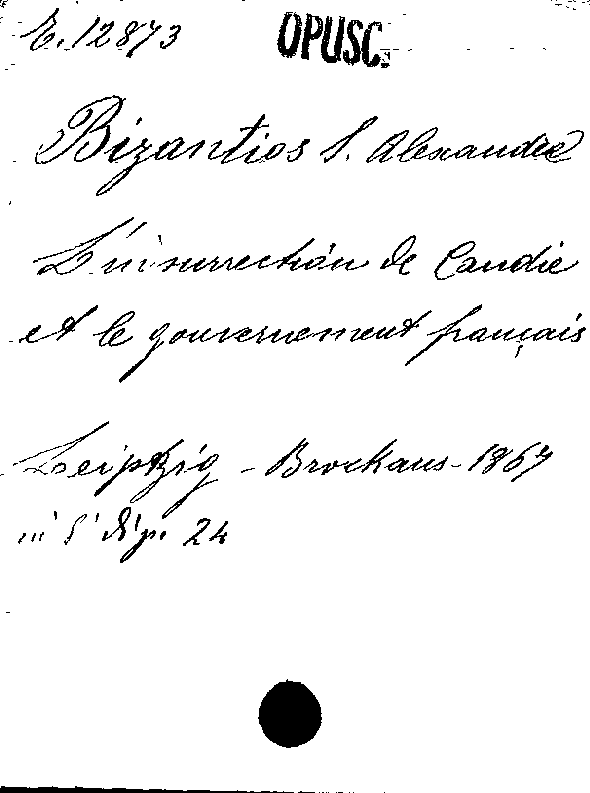 E.12873 OPUSC.
Bizantios S. Alexandre
L'insurrection de Candie
et le gouvernement français
Leipzig - Brockaus - 1867
in 8° di p. 24